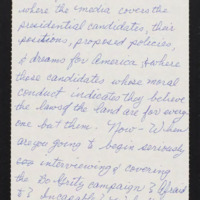 where the media covers the
presidential candidates, their
positions, proposed policies,
& dreams for America & where
those candidates whose moral
conduct indicates they believe
the laws of the land are for every
one but them. Now - When
are you going to begin seriously
interviewing & covering
the Bo Gritz campaign? Afraid
to?